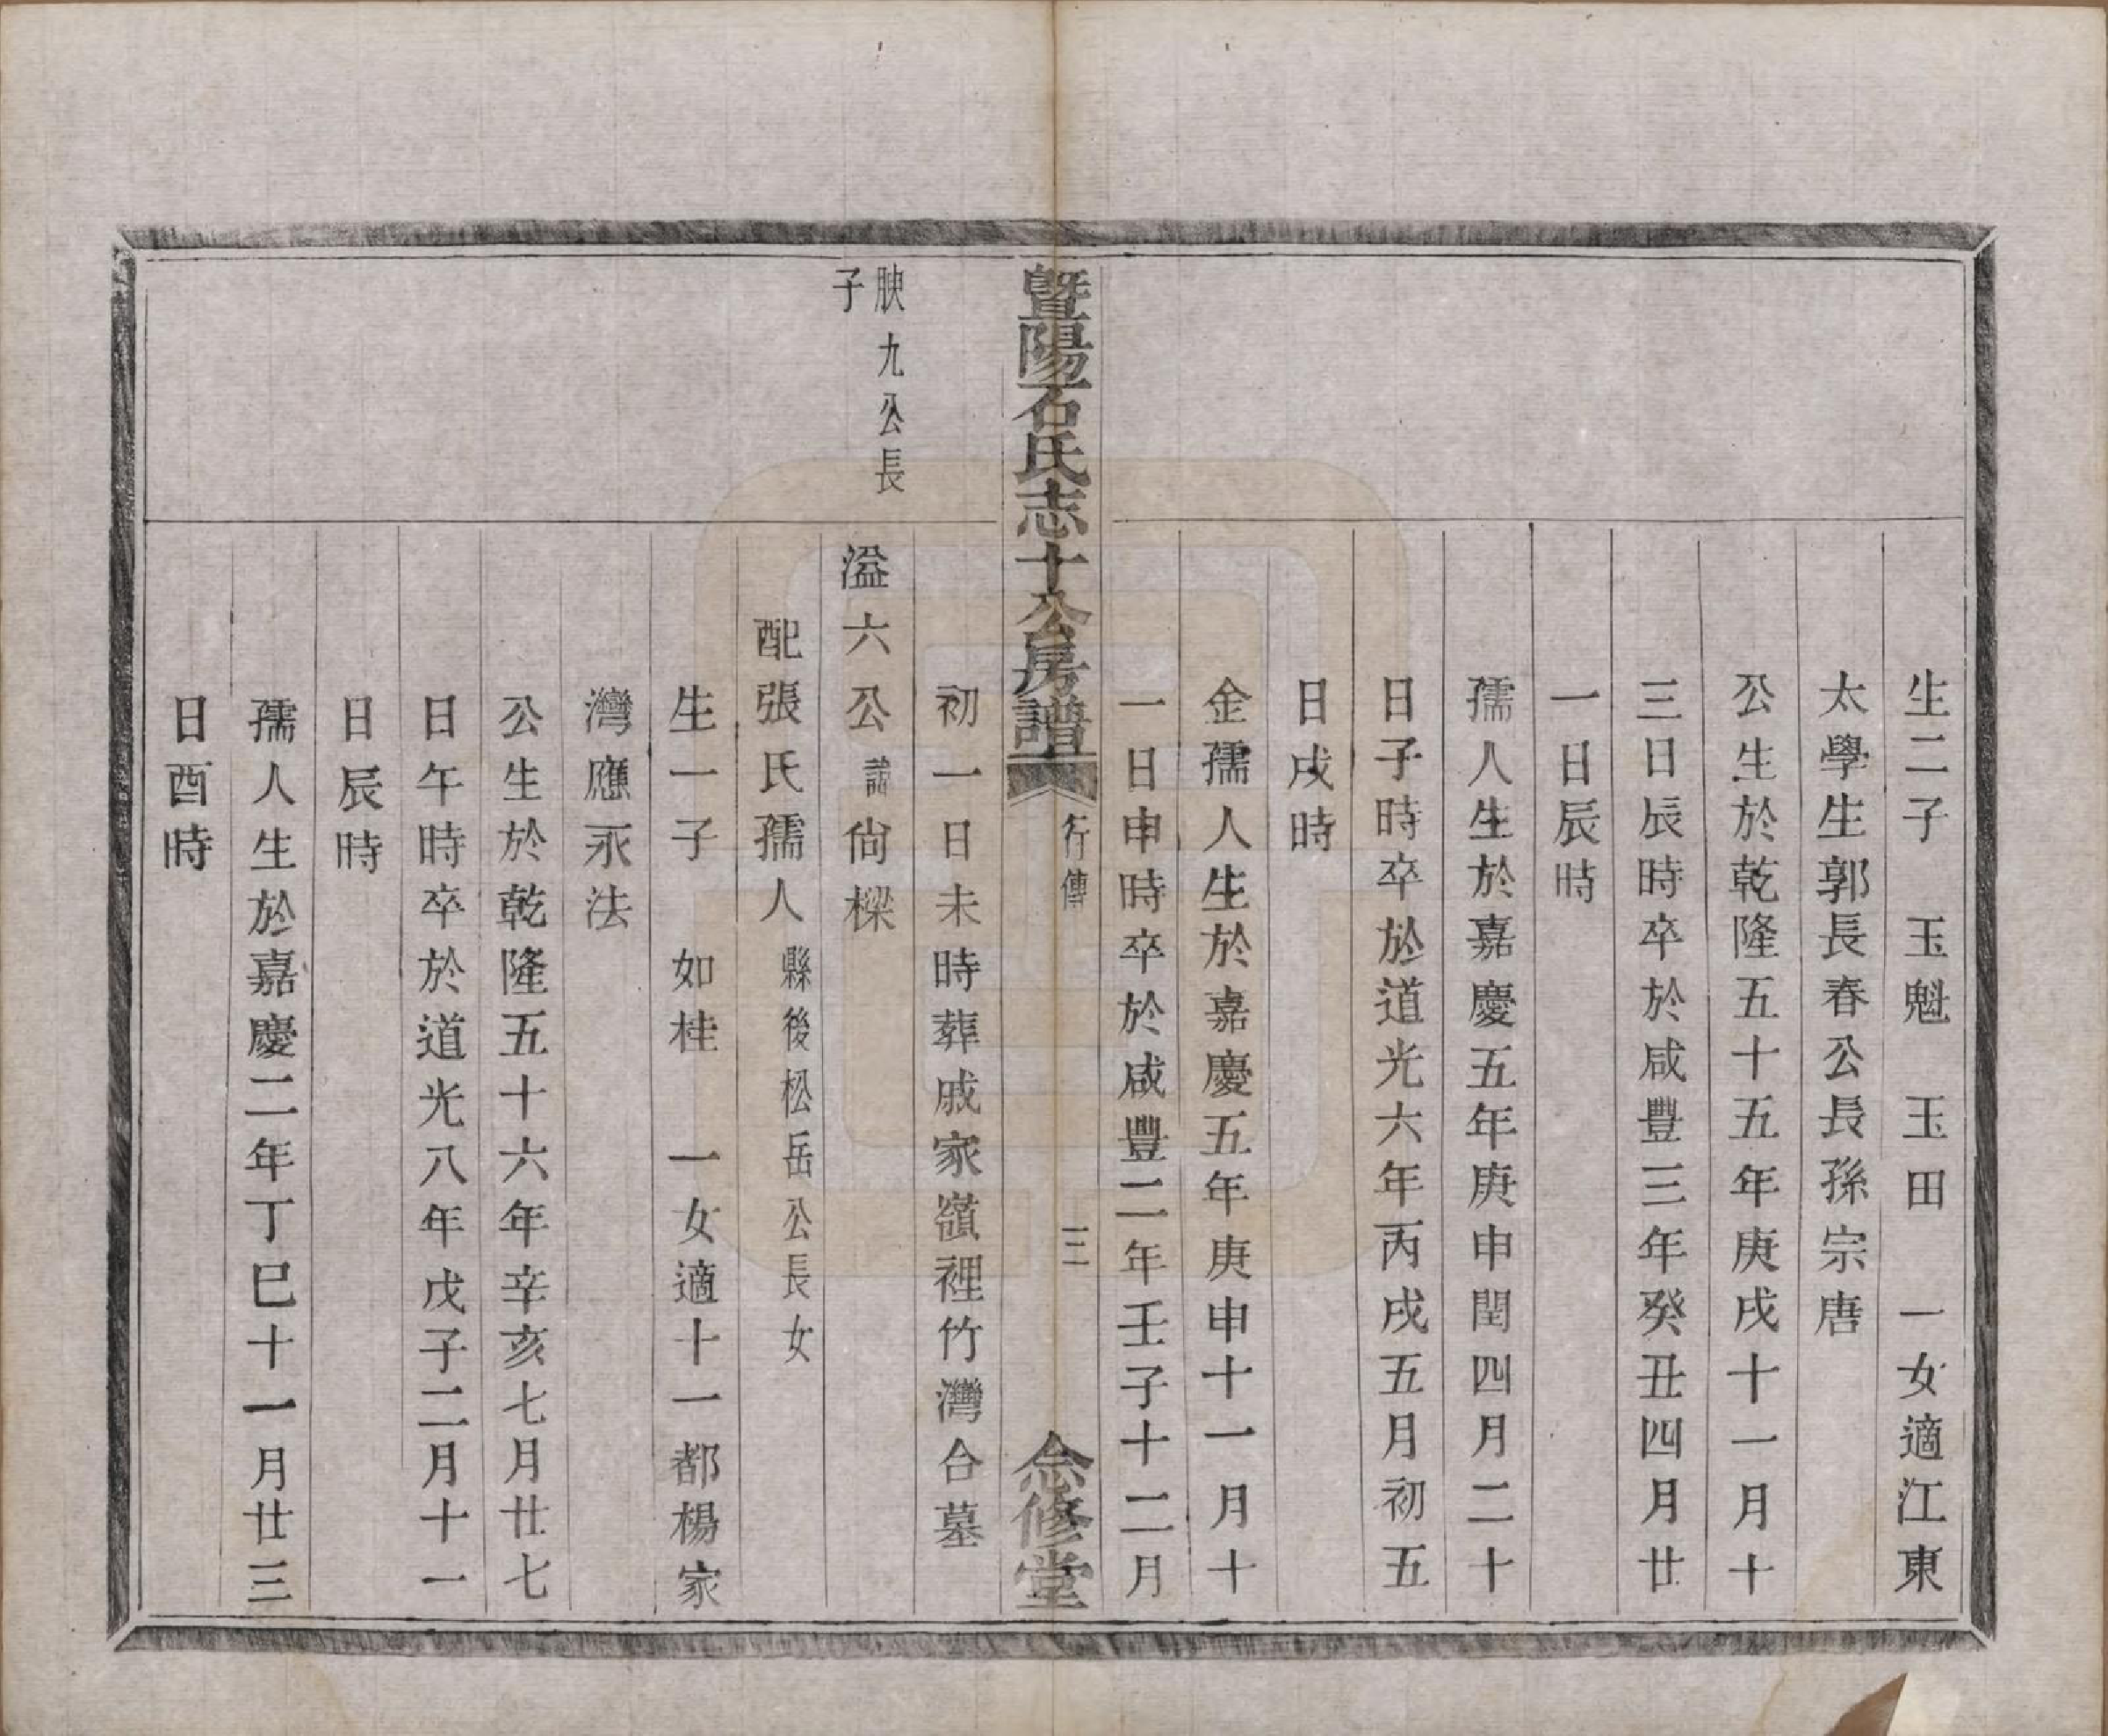 生二子　玉魁　玉田　一女適江東
太學生郭長春公長孫宗唐
公生於乾隆五十五年庚戌十一月十
三日辰時卒於咸豐三年癸丑四月廿
一日辰時
孺人生於嘉慶五年庚申閏四月二十
日子時卒於道光六年丙戌五月初五
日戌時
金孺人生於嘉慶五年庚申十一月十
一日申時卒於咸豐二年壬子十二月
暨陽石氏志十公房譜
行傳
三
念修堂
初一日未時葬戚家嶺裡竹灣合墓
腴九公長
子
溢六公諱尙樑
配張氏孺人縣後松岳公長女
生一子　如桂　一女適十一都楊家
灣應永法
公生於乾隆五十六年辛亥七月廿七
日午時卒於道光八年戊子二月十一
日辰時
孺人生於嘉慶二年丁巳十一月廿三
日酉時